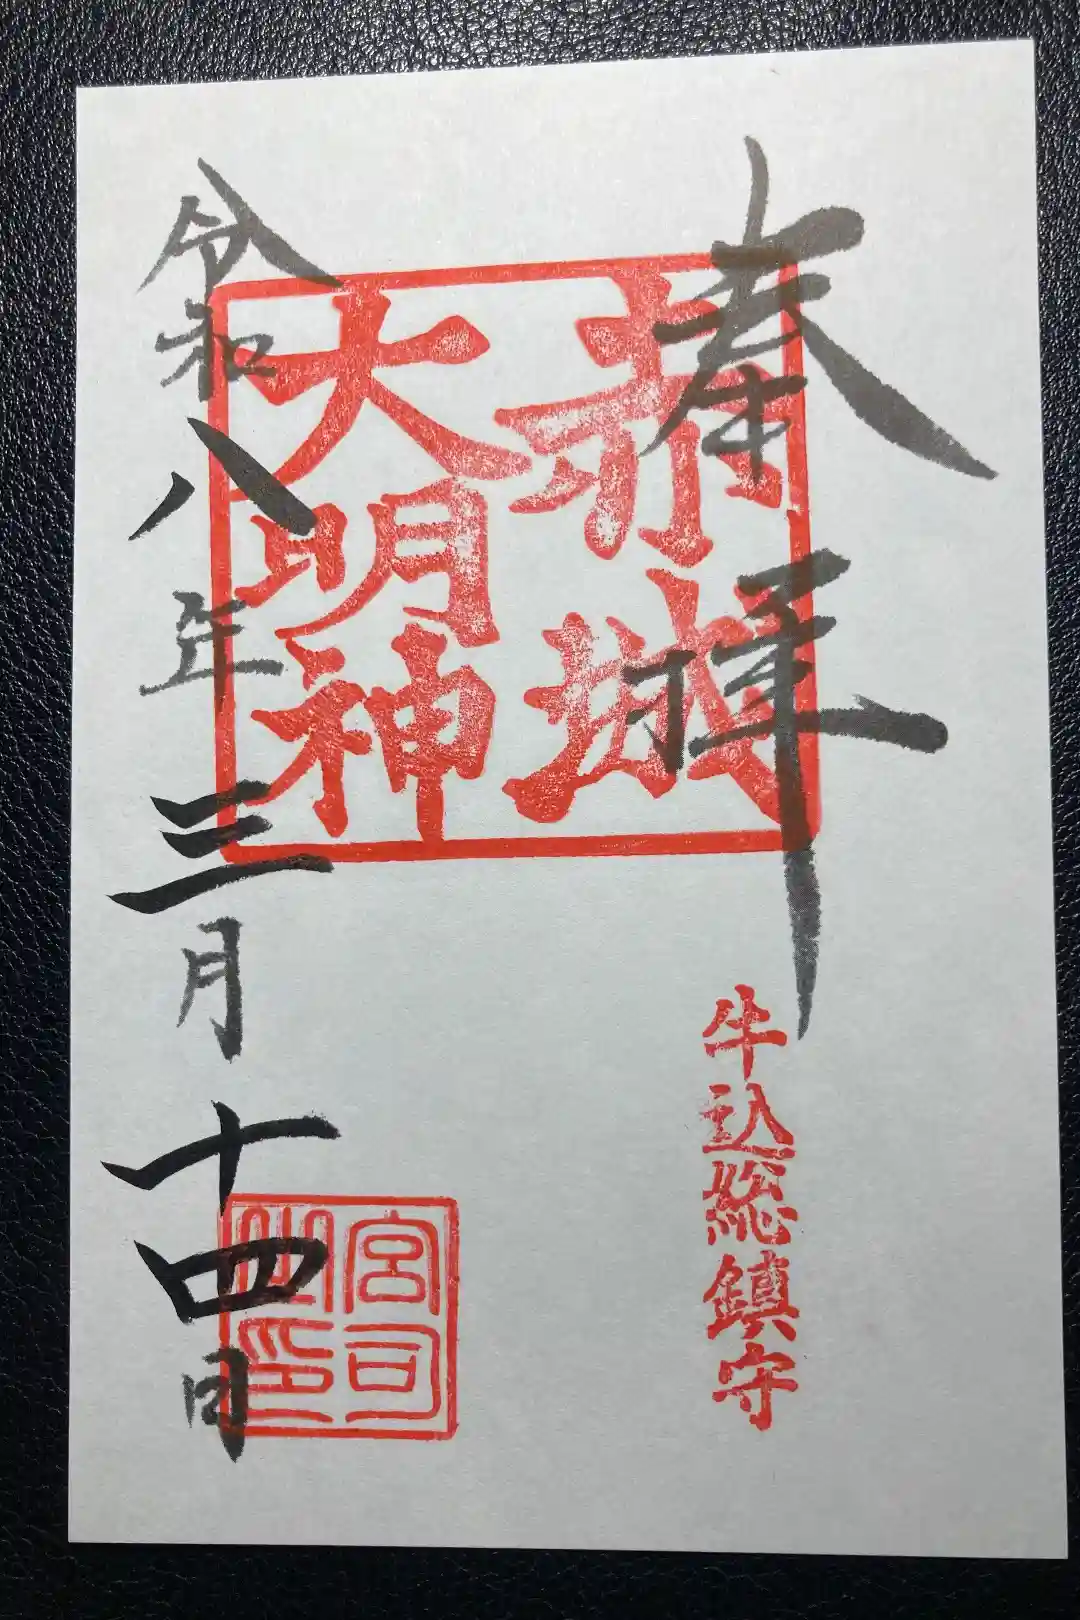 奉拝
牛込総鎮守
赤城
大明神
宮司
之印
令和八年三月十四日